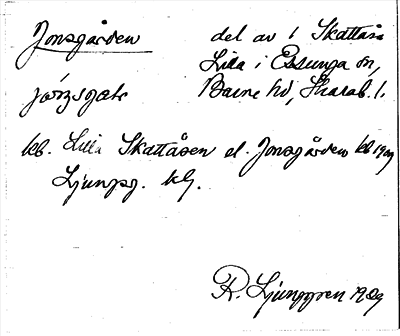 Jonsgården del av 1 Skattås
Lilla i Essunga sn,
Barne hd, Skarab. l.
kb. Lilla Skattåsen el. Jonsgården kb 1909
Ljungsg. kg.
R. Ljunggren 1909